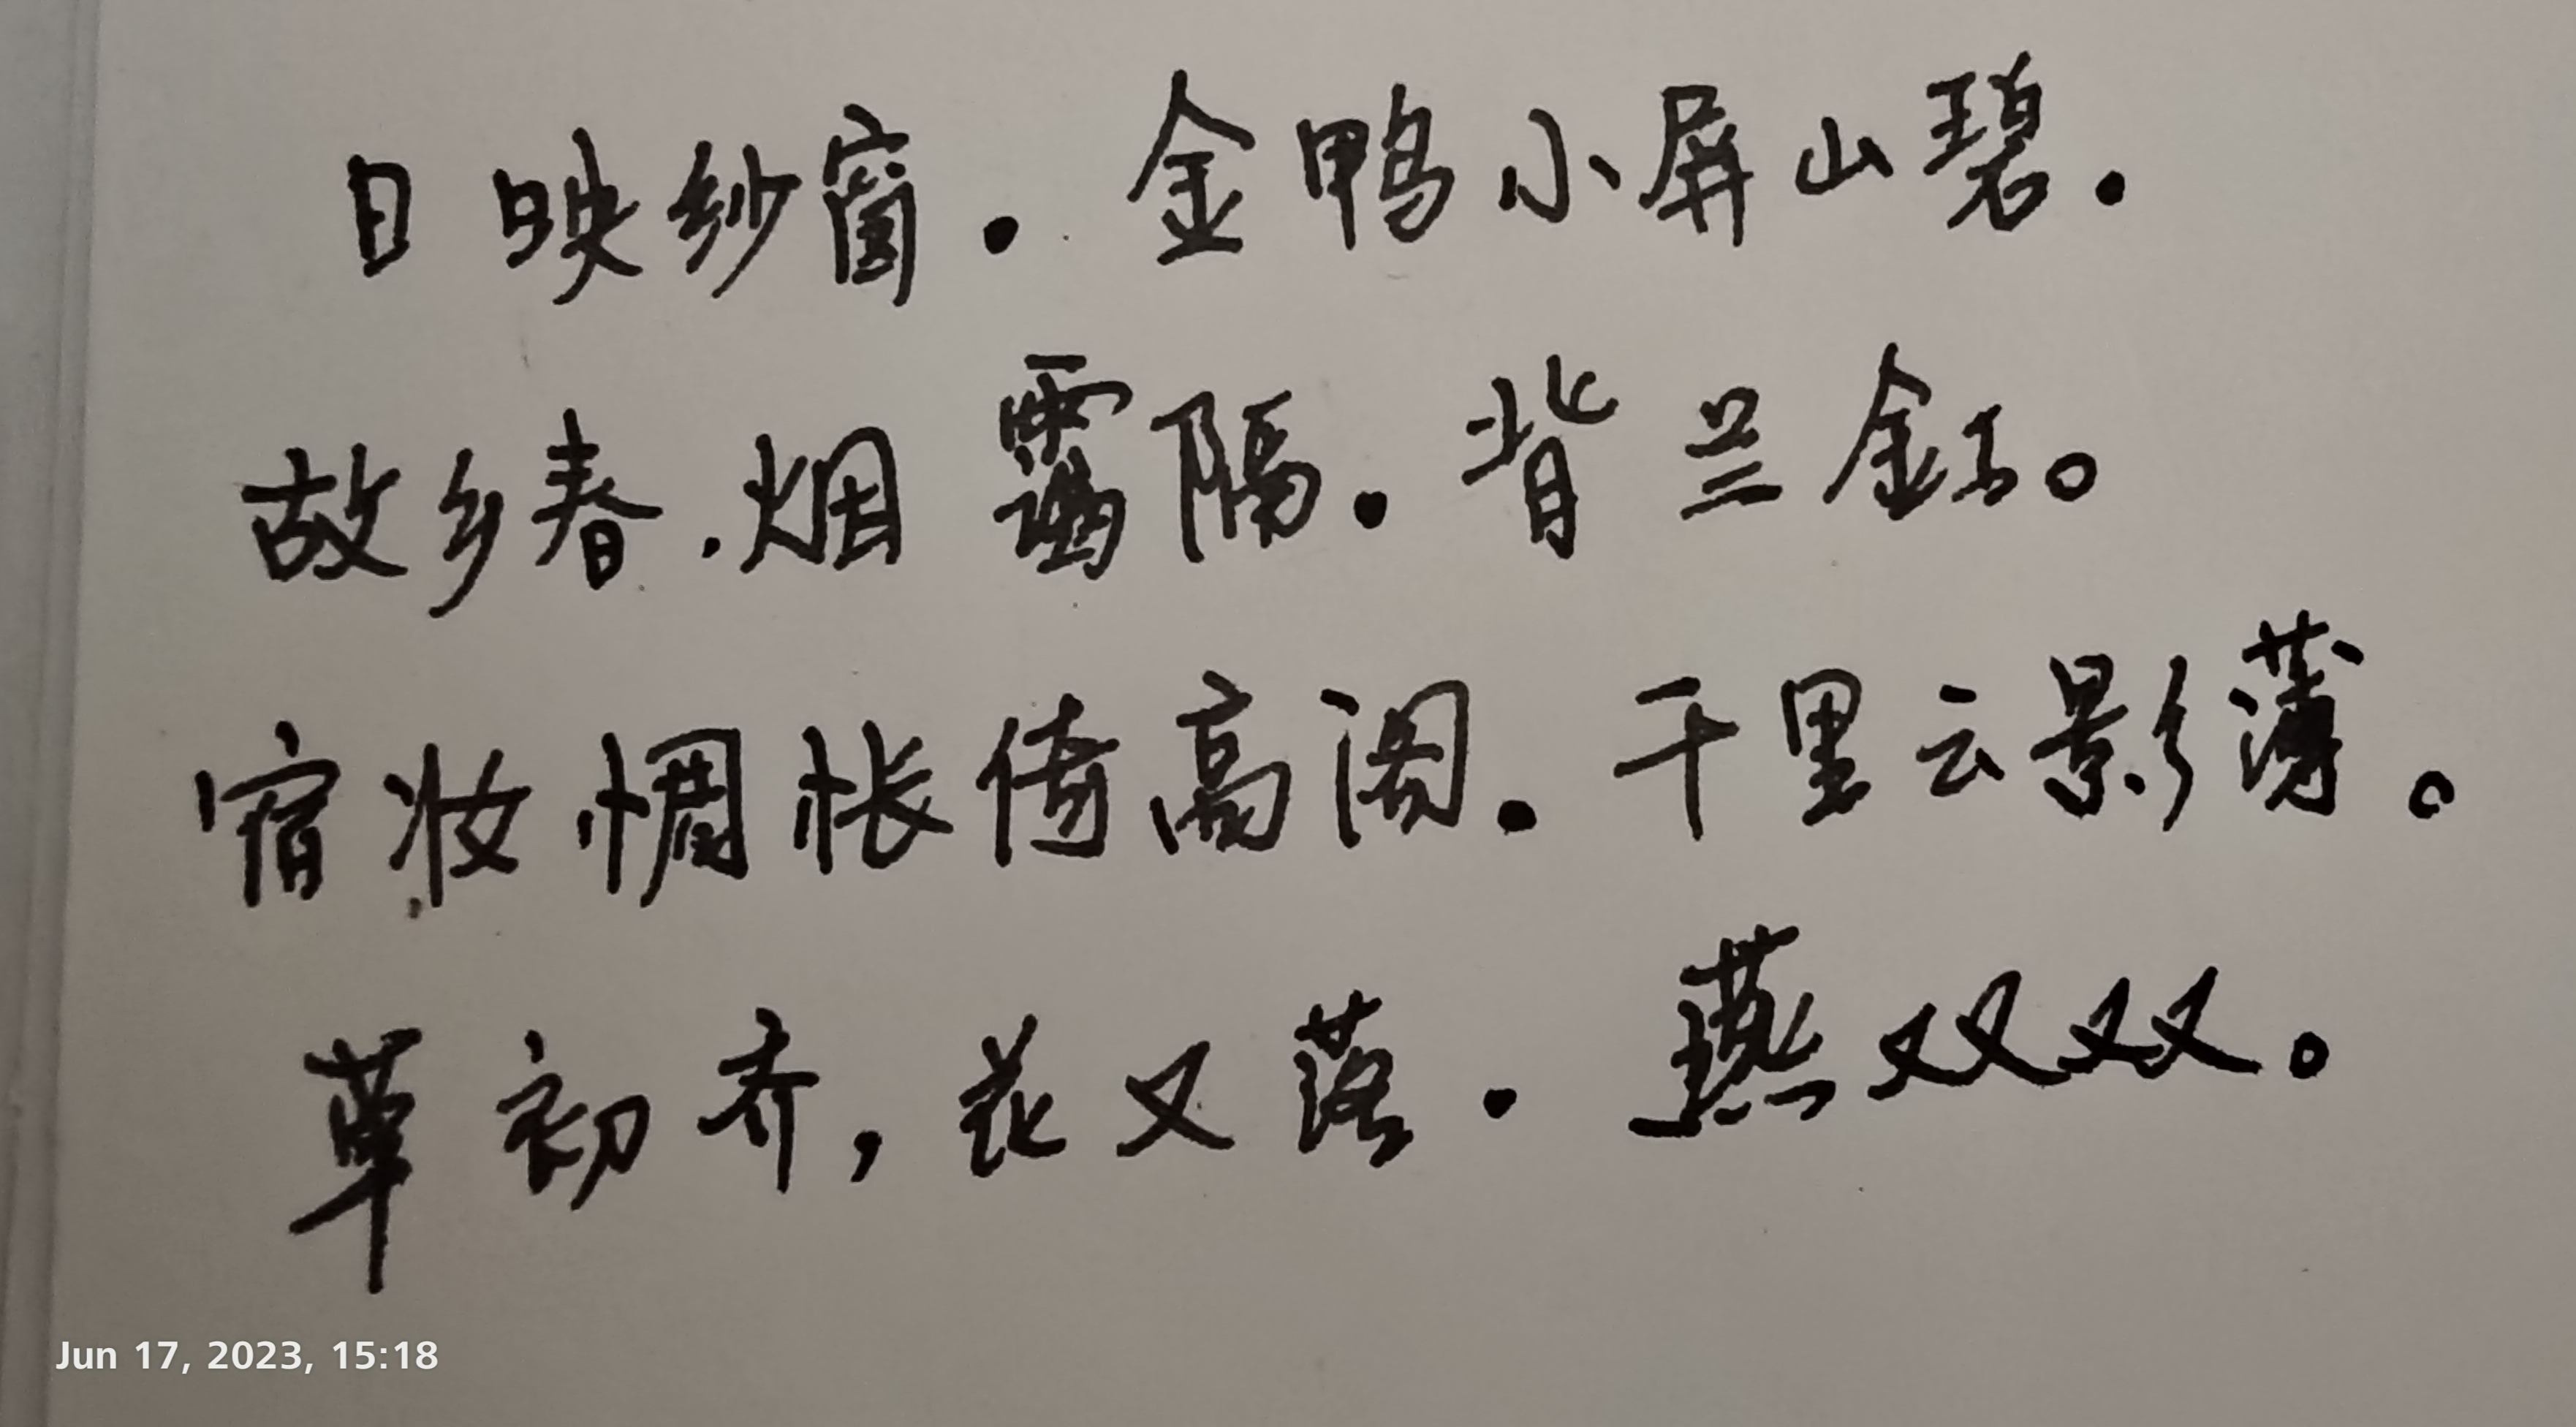 日映纱窗. 金鸭小屏山碧.
故乡春.烟霭隔.背兰釭。
宿妆惆怅倚高阁.千里云影薄。
草初齐,花又落.燕双双。
Jun 17, 2023, 15:18